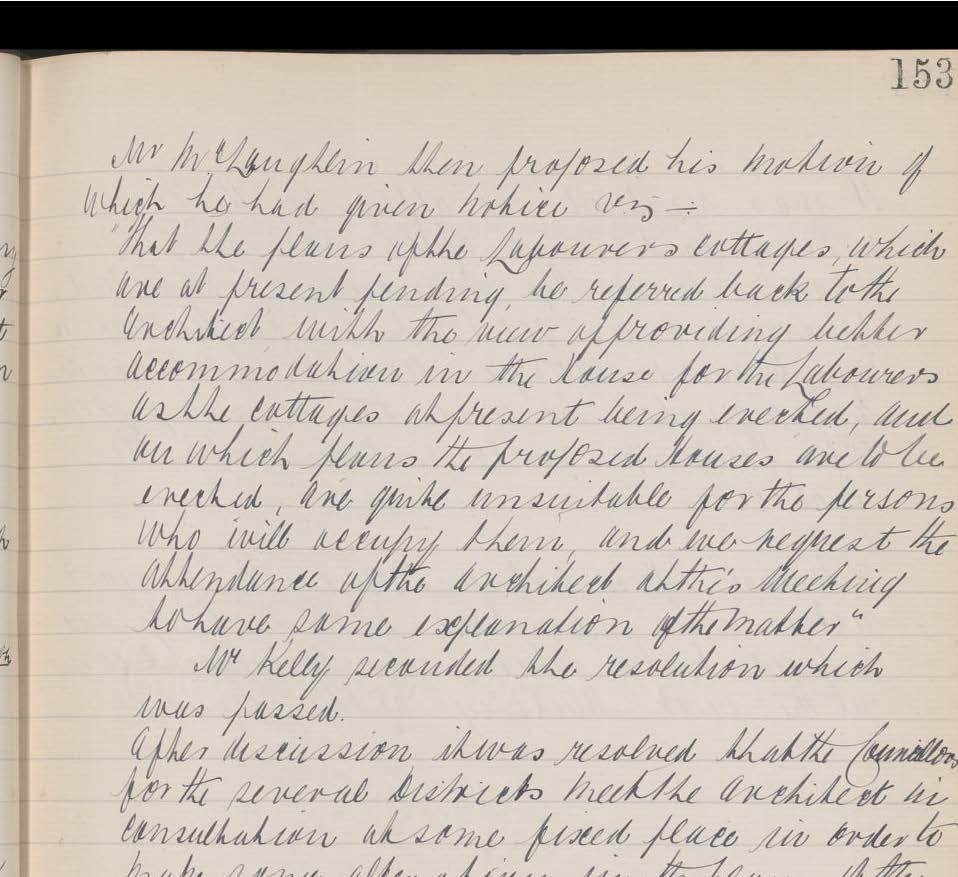 153
Mr McLaughlin then proposed his motion of
which he had given notice viz —:
"That the plans of the Labourers cottages, which
are at present pending, be referred back to the
Architect with the view of providing better
accommodation in the house for the Labourers
as the cottages at present being erected, and
on which plans the proposed houses are to be
erected, are quite unsuitable for the persons
who will occupy them, and we request the
attendance of the architect at this meeting
to have some explanation of the matter"
Mr Kelly seconded the resolution which
was passed.
After discussion it was resolved that the Councillors
for the several Districts meet the Architect in
consultation at some fixed place in order to
make some alterations in the